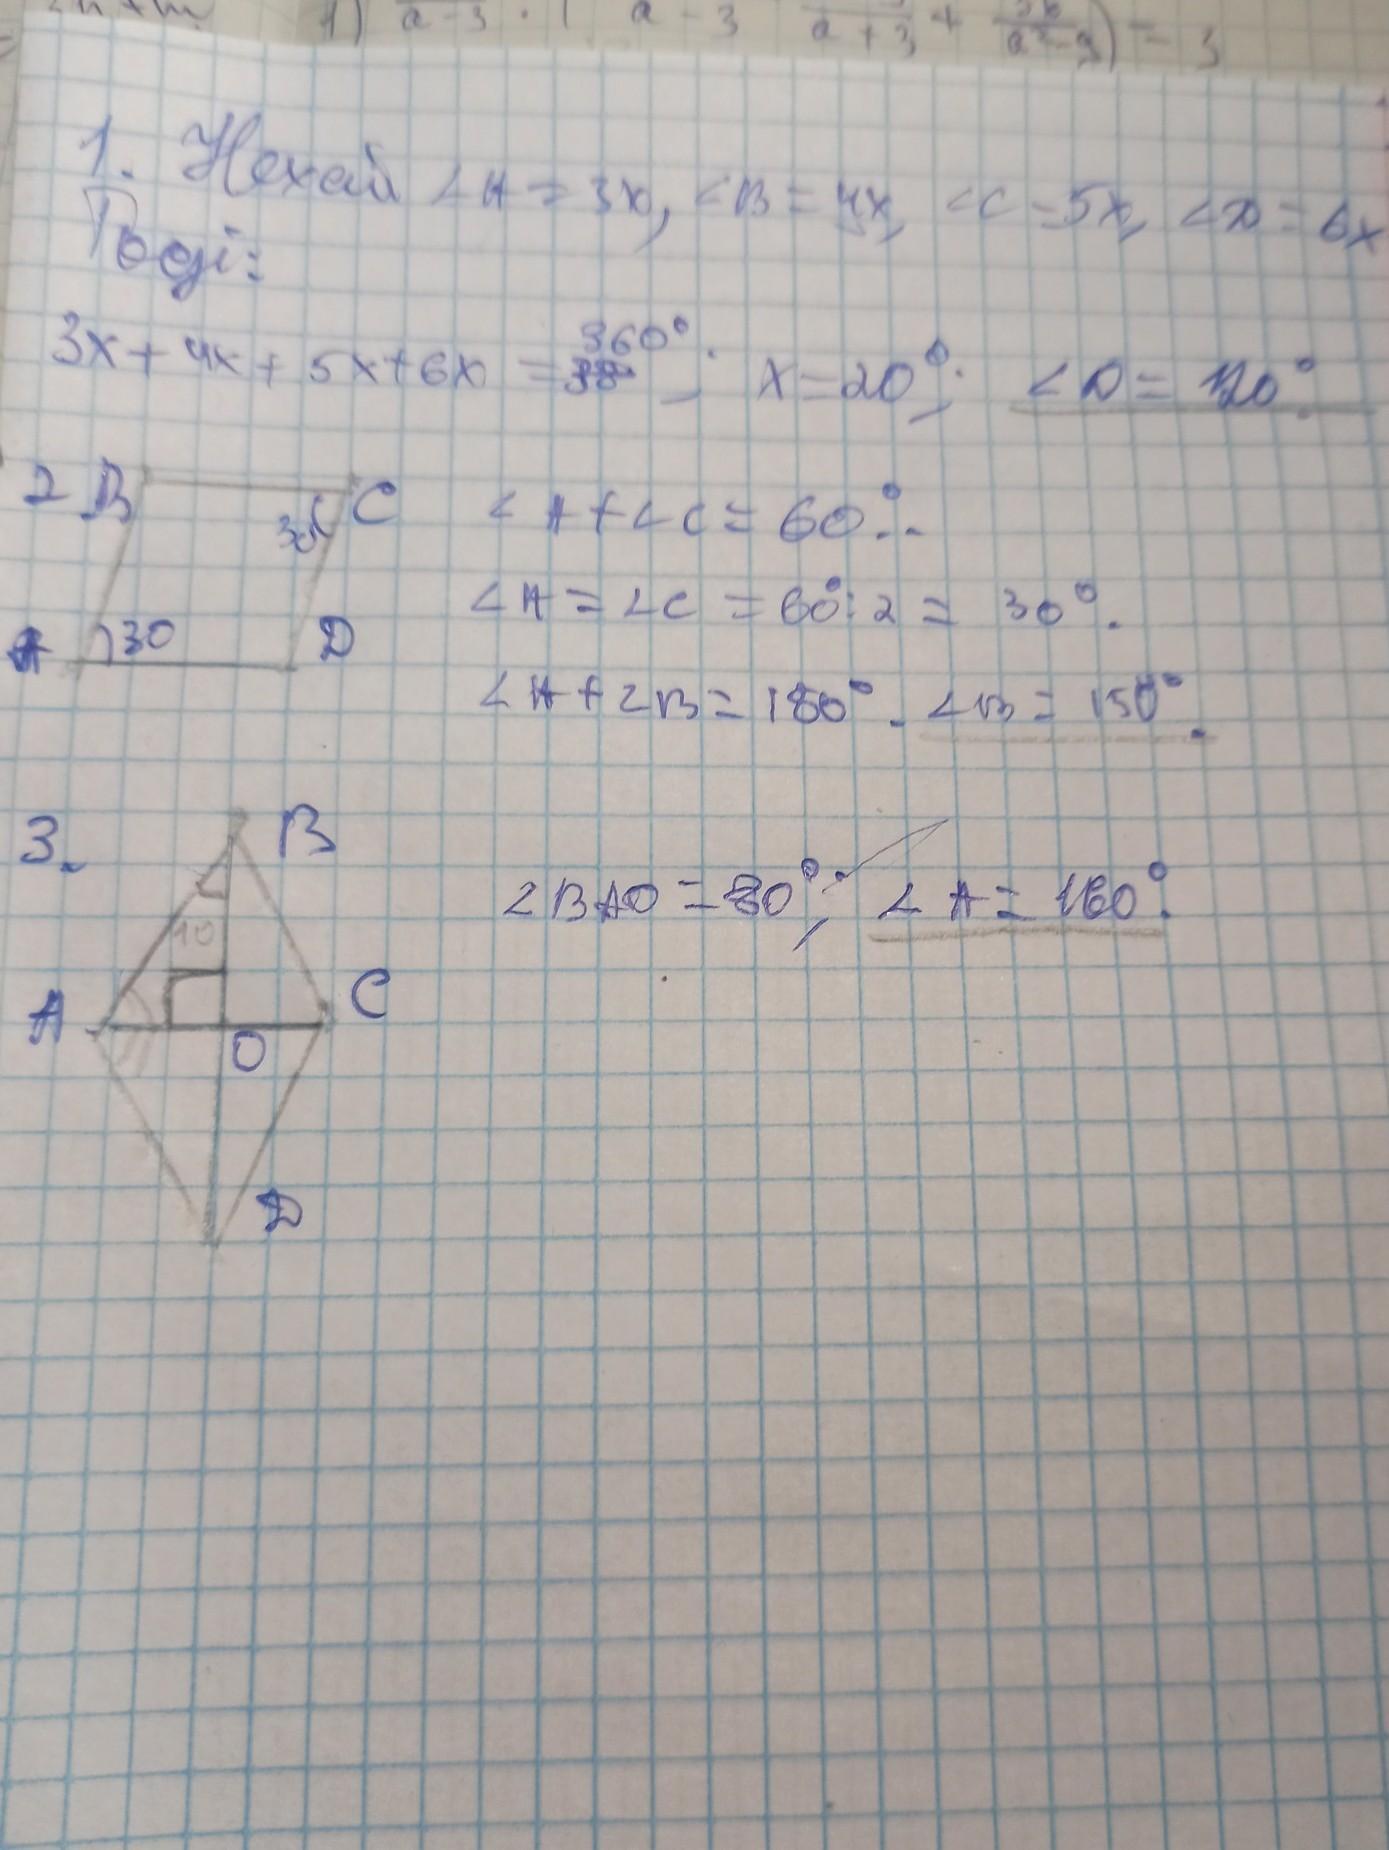 1) a-3 · ( a-3 a+3 + a²-9 ) = 3
1. Нехай ∠A = 3x, ∠B = 4x, ∠C = 5x, ∠D = 6x
Тоді:
3x + 4x + 5x + 6x = 360°; x = 20°; ∠D = 120°.
2 B C ∠A + ∠C = 60°.
30
∠A = ∠C = 60°:2 = 30°.
A 30 D
∠A + ∠B = 180°. ∠B = 150°.
3. B
∠BAO = 80°; ∠A = 160°.
10
A C
O
D